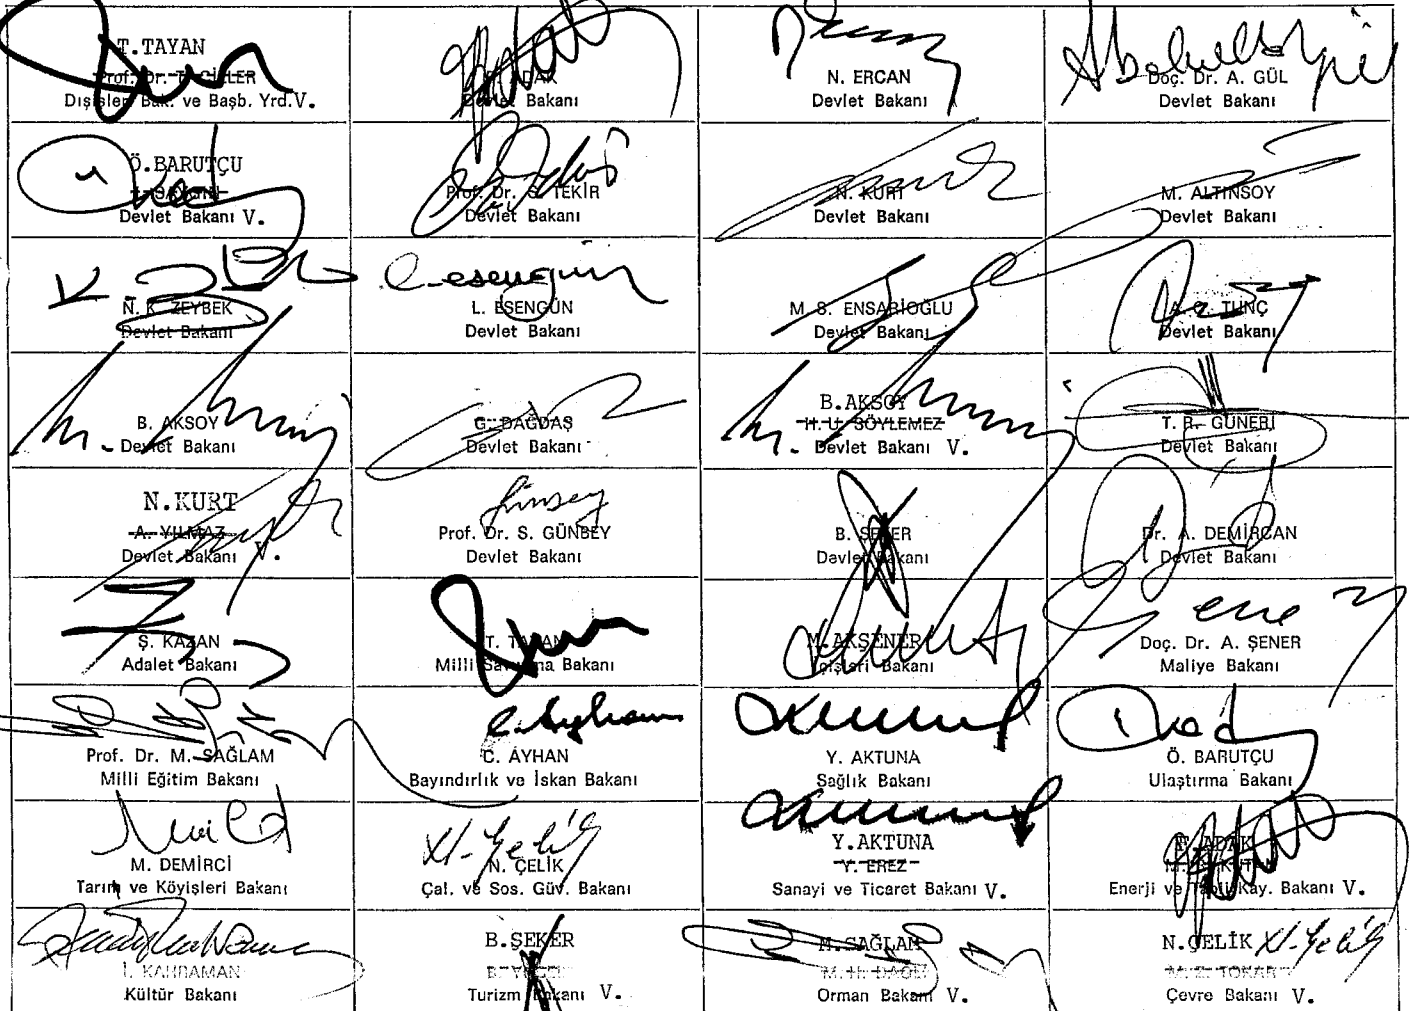 T.TAYAN
Prof. Dr. T. ÇİLLER
Dışişleri Bak. ve Başb. Yrd.V.
F. ADAK
Devlet Bakanı
N. ERCAN
Devlet Bakanı
Abdullah Gül
Doç. Dr. A. GÜL
Devlet Bakanı
Ö.BARUTÇU
Devlet Bakanı V.
Prof. Dr. S. TEKİR
Devlet Bakanı
N. KURT
Devlet Bakanı
M. ALTINSOY
Devlet Bakanı
N. K. ZEYBEK
Devlet Bakanı
L. ESENGÜN
Devlet Bakanı
M. S. ENSARİOĞLU
Devlet Bakanı
TUNÇ
Devlet Bakanı
B. AKSOY
Devlet Bakanı
G. DAĞDAŞ
Devlet Bakanı
B.AKSOY
H. U. SÖYLEMEZ
Devlet Bakanı V.
T. R. GÜNERİ
Devlet Bakanı
N.KURT
A. YILMAZ
Devlet Bakanı V.
Prof. Dr. S. GÜNBEY
Devlet Bakanı
B. ŞEKER
Devlet Bakanı
Dr. A. DEMİRCAN
Devlet Bakanı
Ş. KAZAN
Adalet Bakanı
T. TAYAN
Milli Savunma Bakanı
M. AKŞENER
İçişleri Bakanı
Doç. Dr. A. ŞENER
Maliye Bakanı
Prof. Dr. M. SAĞLAM
Milli Eğitim Bakanı
C. AYHAN
Bayındırlık ve İskan Bakanı
Y. AKTUNA
Sağlık Bakanı
Ö. BARUTÇU
Ulaştırma Bakanı
M. DEMİRCİ
Tarım ve Köyişleri Bakanı
N. ÇELİK
Çal. ve Sos. Güv. Bakanı
Y.AKTUNA
Y. EREZ
Sanayi ve Ticaret Bakanı V.
F.ADAK
Enerji ve Tabii Kay. Bakanı V.
İ. KAHRAMAN
Kültür Bakanı
B.ŞEKER
Turizm Bakanı V.
M.SAĞLAM
M. H. DAĞLI
Orman Bakanı V.
N.ÇELİK
M. Z. TOKAR
Çevre Bakanı V.